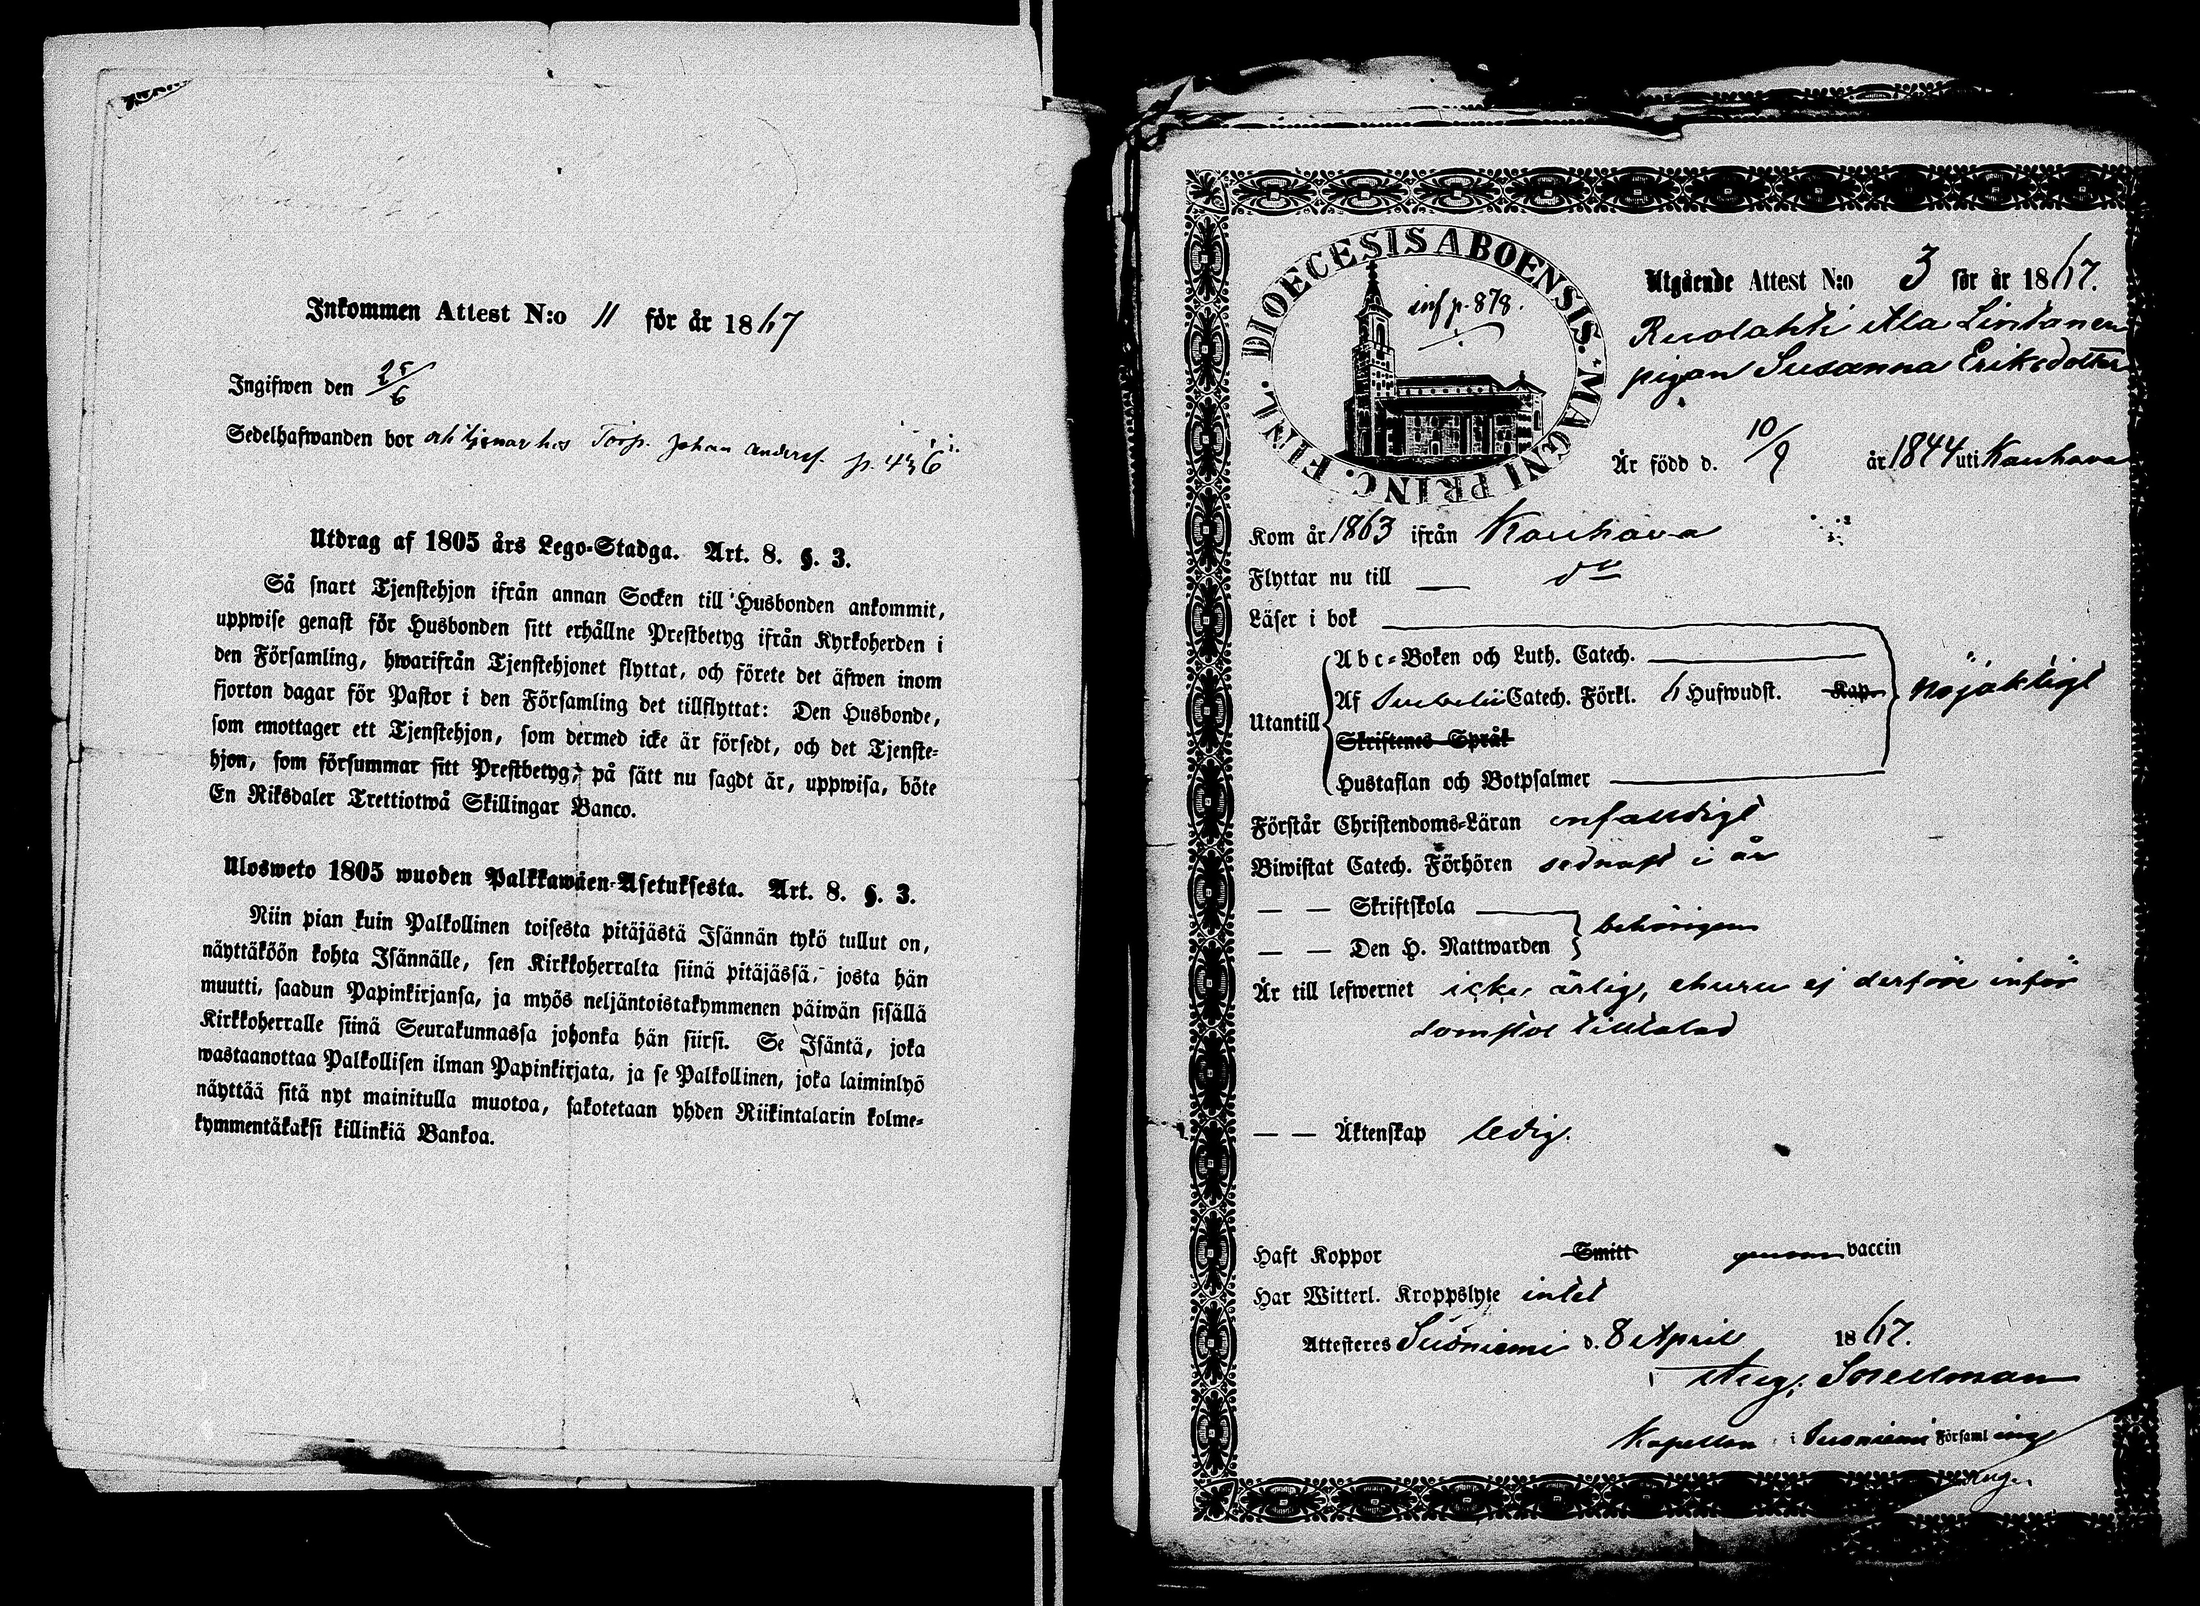 Inkommen Attest N:o 11 för år 1867
Ingifwen den 25/6
Sedelhafwanden bor och tjenar hos Torp. Johan Andersf. p. 436
Utdrag af 1805 års Lego-Stadga. Art. 8. §. 3.
Så snart Tjenstehjon ifrån annan Socken till Husbonden ankommit,
uppwise genast för Husbonden sitt erhållne Prestbetyg ifrån Kyrkoherden i
den Församling, hwarifrån Tjenstehjonet flyttat, och förete det äfwen inom
fjorton dagar för Pastor i den Församling det tillflyttat: Den Husbonde,
som emottager ett Tjenstehjon, som dermed icke är försedt, och det Tjenste-
hjon, som försummar sitt Prestbetyg, på sätt nu sagdt är, uppwisa, böte
En Riksdaler Trettiotwå Skillingar Banco.
Ulosweto 1805 wuoden Palkkawäen-Asetuksesta. Art. 8. §. 3.
Niin pian kuin Palkollinen toisesta pitäjästä Isännän tykö tullut on,
näyttäköön kohta Isännälle, sen Kirkkoherralta siinä pitäjässä, josta hän
muutti, saadun Papinkirjansa, ja myös neljäntoistakymmenen päiwän sisällä
Kirkkoherralle siinä Seurakunnassa johonka hän siirsi. Se Isäntä, joka
wastaanottaa Palkollisen ilman Papinkirjata, ja se Palkollinen, joka laiminlyö
näyttää sitä nyt mainitulla muotoa, sakotetaan yhden Riikintalarin kolme-
kymmentäkaksi killinkiä Bankoa.
DIOECESIS ABOENSIS. MAGNI PRINC. FINL.
inf p. 878.
Utgående Attest N:o 3 för år 1867.
Ruolahti Ala Lintanen
pigan Susanna Eriksdotter
Är född d. 10/9 år 1844 uti Kauhava
Kom år 1863 ifrån Kauhava
Flyttar nu till — do
Läser i bok
Abc-Boken och Luth. Catech.
Utantill Af Svebelii Catech. Förkl. 6 Hufwudst. Kap. nöjaktigt
Skriftenes Språk
Hustaflan och Botpsalmer
Förstår Christendoms-Läran enfaldigt
Biwistat Catech. Förhören sednast i år
— — Skriftskola
— — Den H. Nattwarden behörigen
Är till lefwernet icke ärlig, ehuru ej derföre inför
domstol tilltalad
— — Äktenskap ledig.
Haft Koppor Smitt genom vaccin
Har Witterl. Kroppslyte intet
Attesteres Suoniemi d. 8 April 1867.
Aug. Snellman
Kapellan i Suoniemi Församling